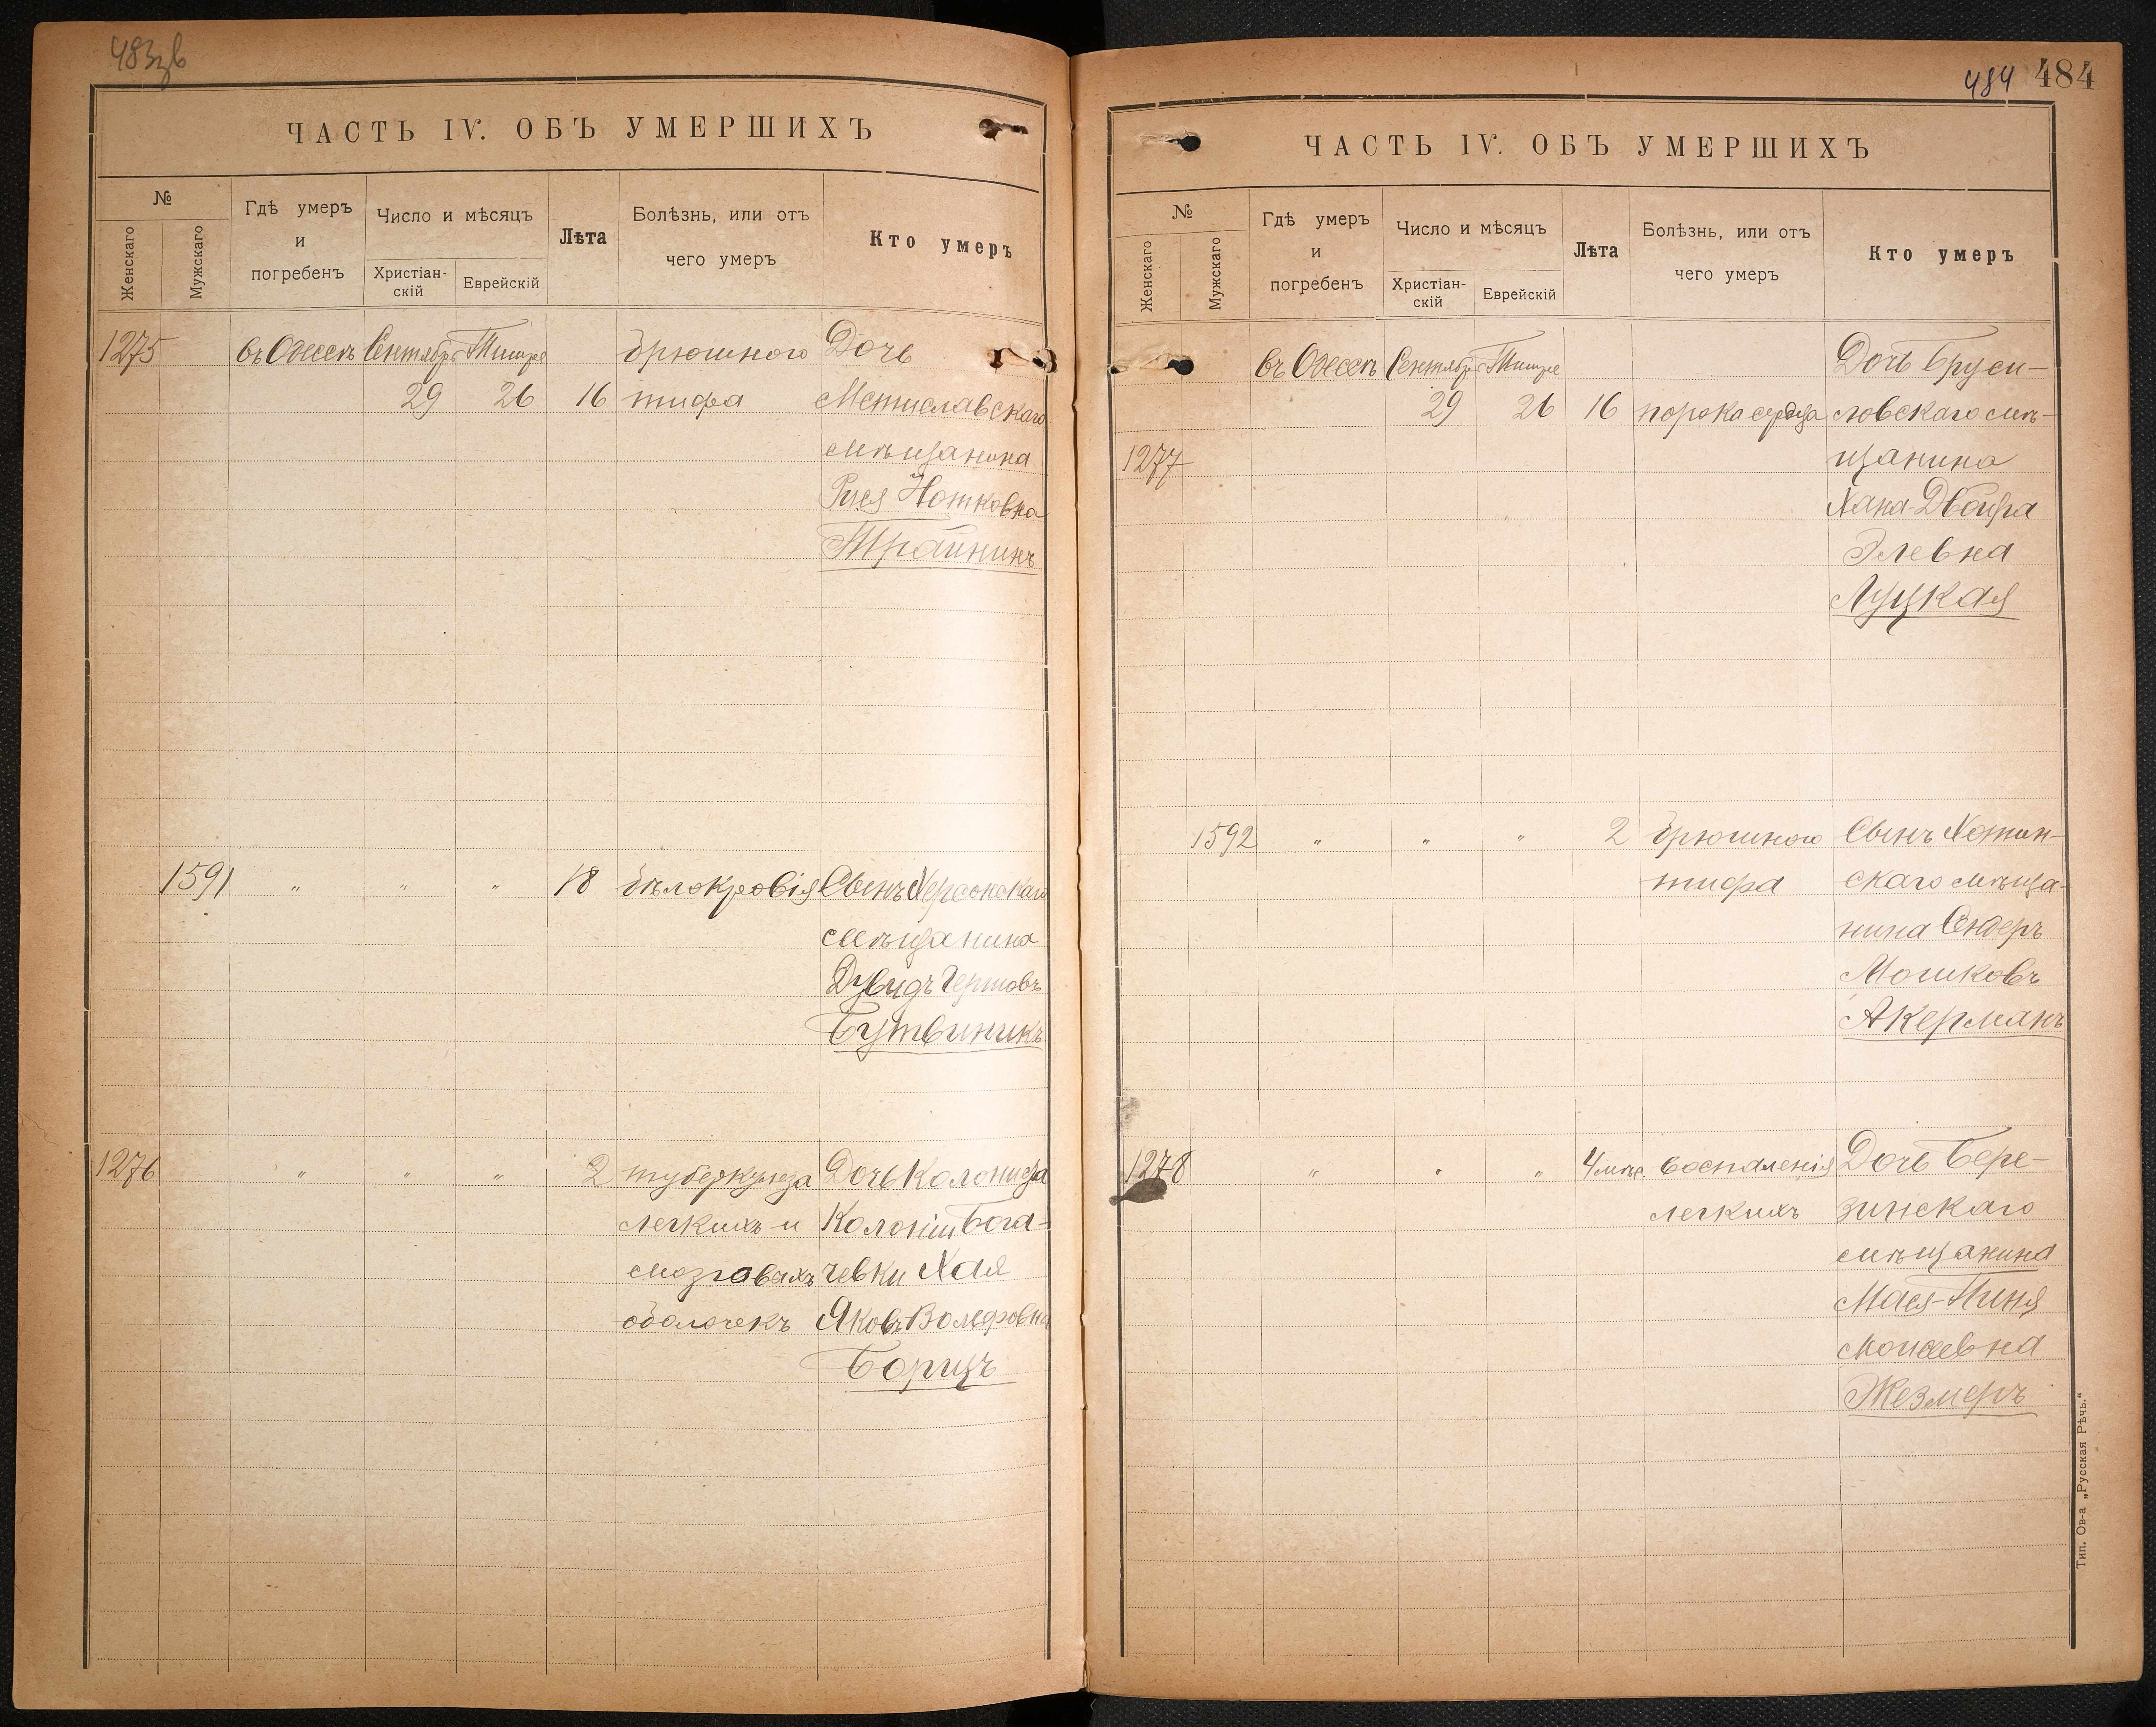 483зв
ЧАСТЬ IV. ОБЪ УМЕРШИХЪ
№
Женскаго
Мужскаго
Гдѣ умеръ
и
погребенъ
Число и мѣсяцъ
Христіан-
скій
Еврейскій
Лѣта
Болѣзнь, или отъ
чего умеръ
Кто умеръ
1275 въ Одессѣ Сентября Тишре брюшного Дочь
29 26 16 тифа Мстиславскаго
мѣщанина
Рися Нотковна
Трайнинъ
1591 " " " 18 бѣлокровія Сынъ Херсонскаго
мѣщанина
Дувидъ Гершовъ
Бутвиникъ
1276 " " " 2 туберкулеза Дочь Колониста
легкихъ и Колоніи Бога-
мозговыхъ чевки Хая
оболочекъ Яковъ Вольфовна
Борицъ
484 484
ЧАСТЬ IV. ОБЪ УМЕРШИХЪ
№
Женскаго
Мужскаго
Гдѣ умеръ
и
погребенъ
Число и мѣсяцъ
Христіан-
скій
Еврейскій
Лѣта
Болѣзнь, или отъ
чего умеръ
Кто умеръ
въ Одессѣ Сентября Тишре Дочь Бруси-
29 26 16 порока сердца ловскаго мѣ-
1277 щанина
Хана-Двойра
Элевна
Луцкая
1592 " " " 2 брюшного Сынъ Хотин-
тифа скаго мѣща-
нина Сендеръ
Мошковъ
Акерманъ
1278 " " " 4 мѣс. воспаленія Дочь Бере-
легкихъ зинскаго
мѣщанина
Мася-Пиня
Моисевна
Жезмеръ
Тип. Ов-а „Русская Рѣчь.“